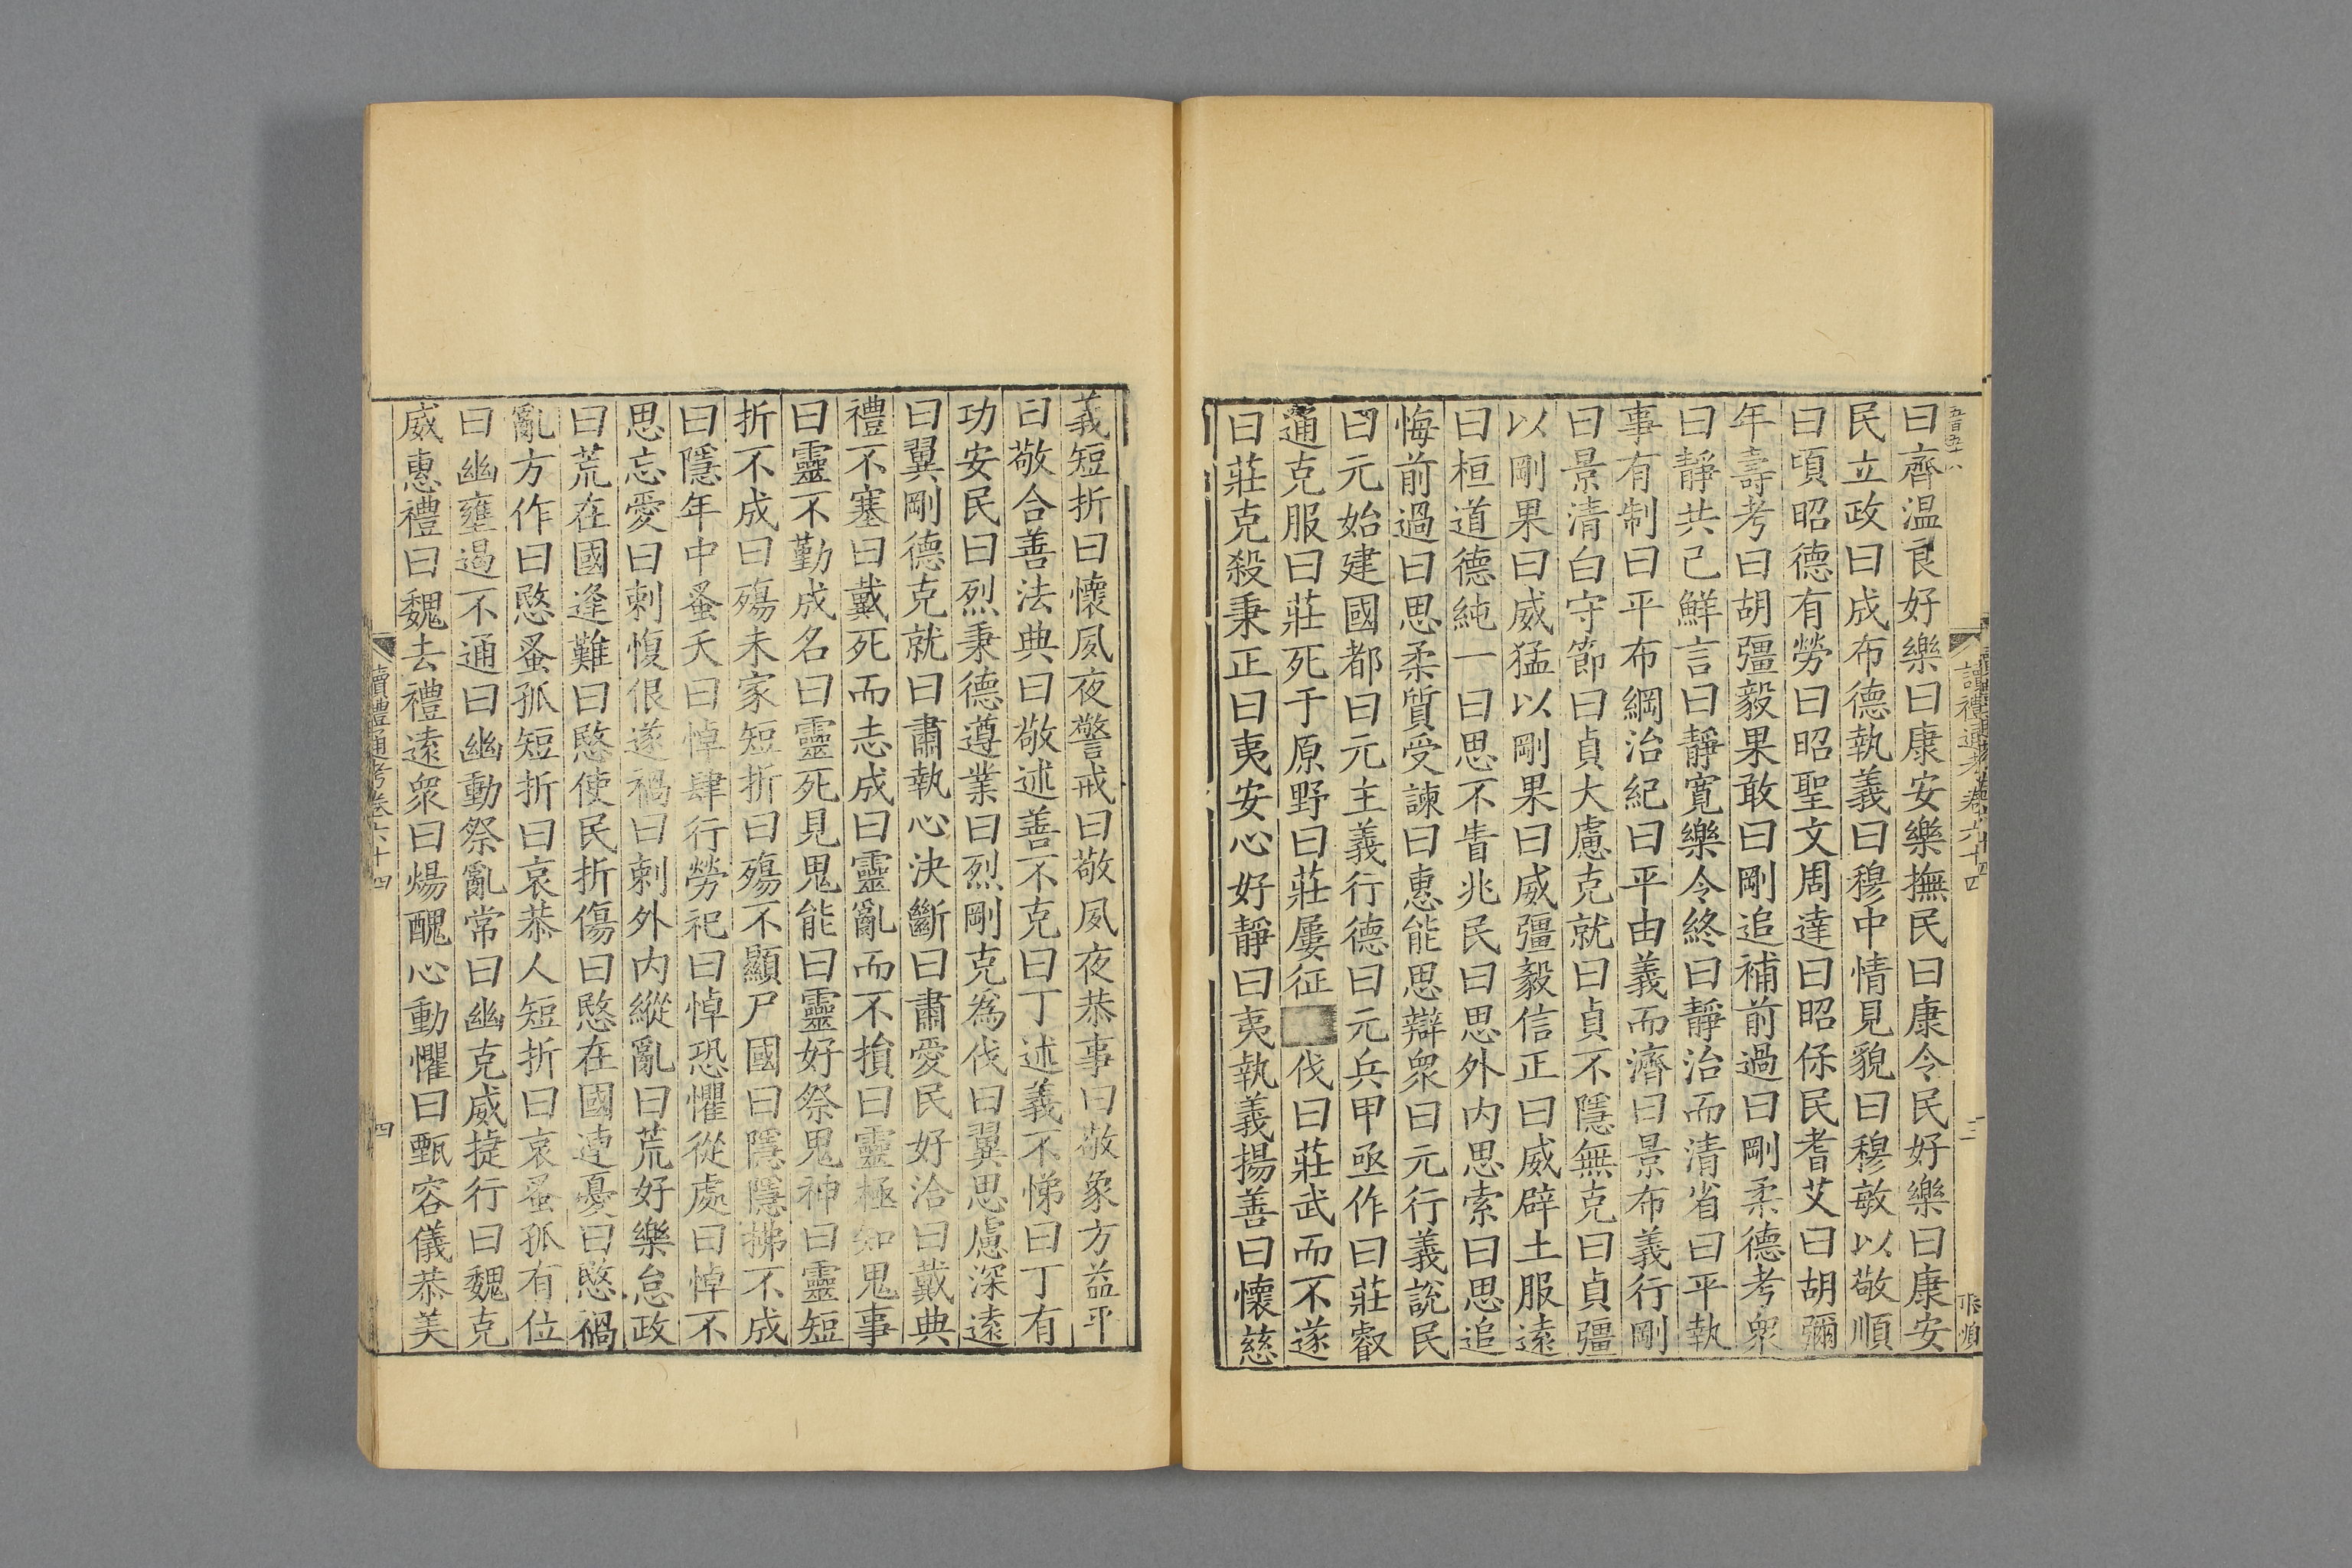 曰齊温良好樂曰康安樂撫民曰康令民好樂曰康安
民立政曰成布德執義曰穆中情見貌曰穆敏以敬順
曰頃昭德有勞曰昭聖文周達曰昭保民耆艾曰胡彌
年壽考曰胡彊毅果敢曰剛追補前過曰剛柔德考衆
曰靜共己鮮言曰靜寬樂令終曰靜治而清省曰平執
事有制曰平布綱治紀曰平由義而濟曰景布義行剛
曰景清白守節曰貞大慮克就曰貞不隱無克曰貞彊
以剛果曰威猛以剛果曰威彊毅信正曰威辟土服遠
曰桓道德純一曰思不眚兆民曰思外内思索曰思追
悔前過曰思柔質受諫曰惠能思辯衆曰元行義説民
曰元始建國都曰元主義行德曰元兵甲亟作曰莊叡
通克服曰莊死于原野曰莊屢征伐曰莊武而不遂
曰莊克殺秉正曰夷安心好靜曰夷執義揚善曰懷慈
讀禮通考卷六十四
三
義短折曰懷夙夜警戒曰敬夙夜恭事曰敬象方益平
曰敬合善法典曰敬述善不克曰丁述義不悌曰丁有
功安民曰烈秉德遵業曰烈剛克爲伐曰翼思慮深遠
曰翼剛德克就曰肅執心決斷曰肅愛民好治曰戴典
禮不塞曰戴死而志成曰靈亂而不損曰靈極知鬼事
曰靈不勤成名曰靈死見鬼能曰靈好祭鬼神曰靈短
折不成曰殤未家短折曰殤不顯尸國曰隱隱拂不成
曰隱年中蚤夭曰悼肆行勞祀曰悼恐懼從處曰悼不
思忘愛曰剌愎佷遂禍曰剌外内縱亂曰荒好樂怠政
曰荒在國逢難曰愍使民折傷曰愍在國遭憂曰愍禍
亂方作曰愍蚤孤短折曰哀恭人短折曰哀蚤孤有位
曰幽壅遏不通曰幽動祭亂常曰幽克威捷行曰魏克
威惠禮曰魏去禮遠衆曰煬醜心動懼曰甄容儀恭美
讀禮通考卷六十四
四